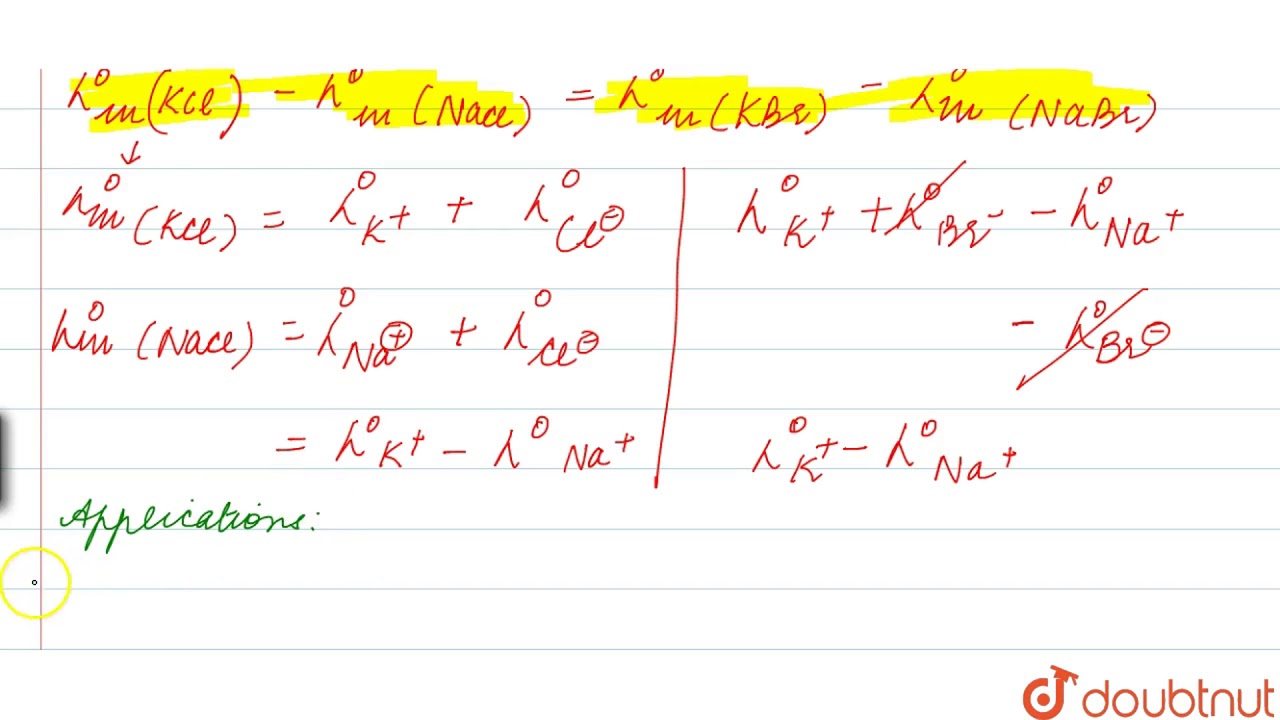 λ°m(KCl) - λ°m(NaCl) = λ°m(KBr) - λ°m(NaBr)
↓
λ°m(KCl) = λ°K+ + λ°Cl⊖
λ°m(NaCl) = λ°Na⊕ + λ°Cl⊖
= λ°K+ - λ°Na+
λ°K+ + λ°Br- - λ°Na+
- λ°Br⊖
λ°K+ - λ°Na+
Applications:
doubtnut